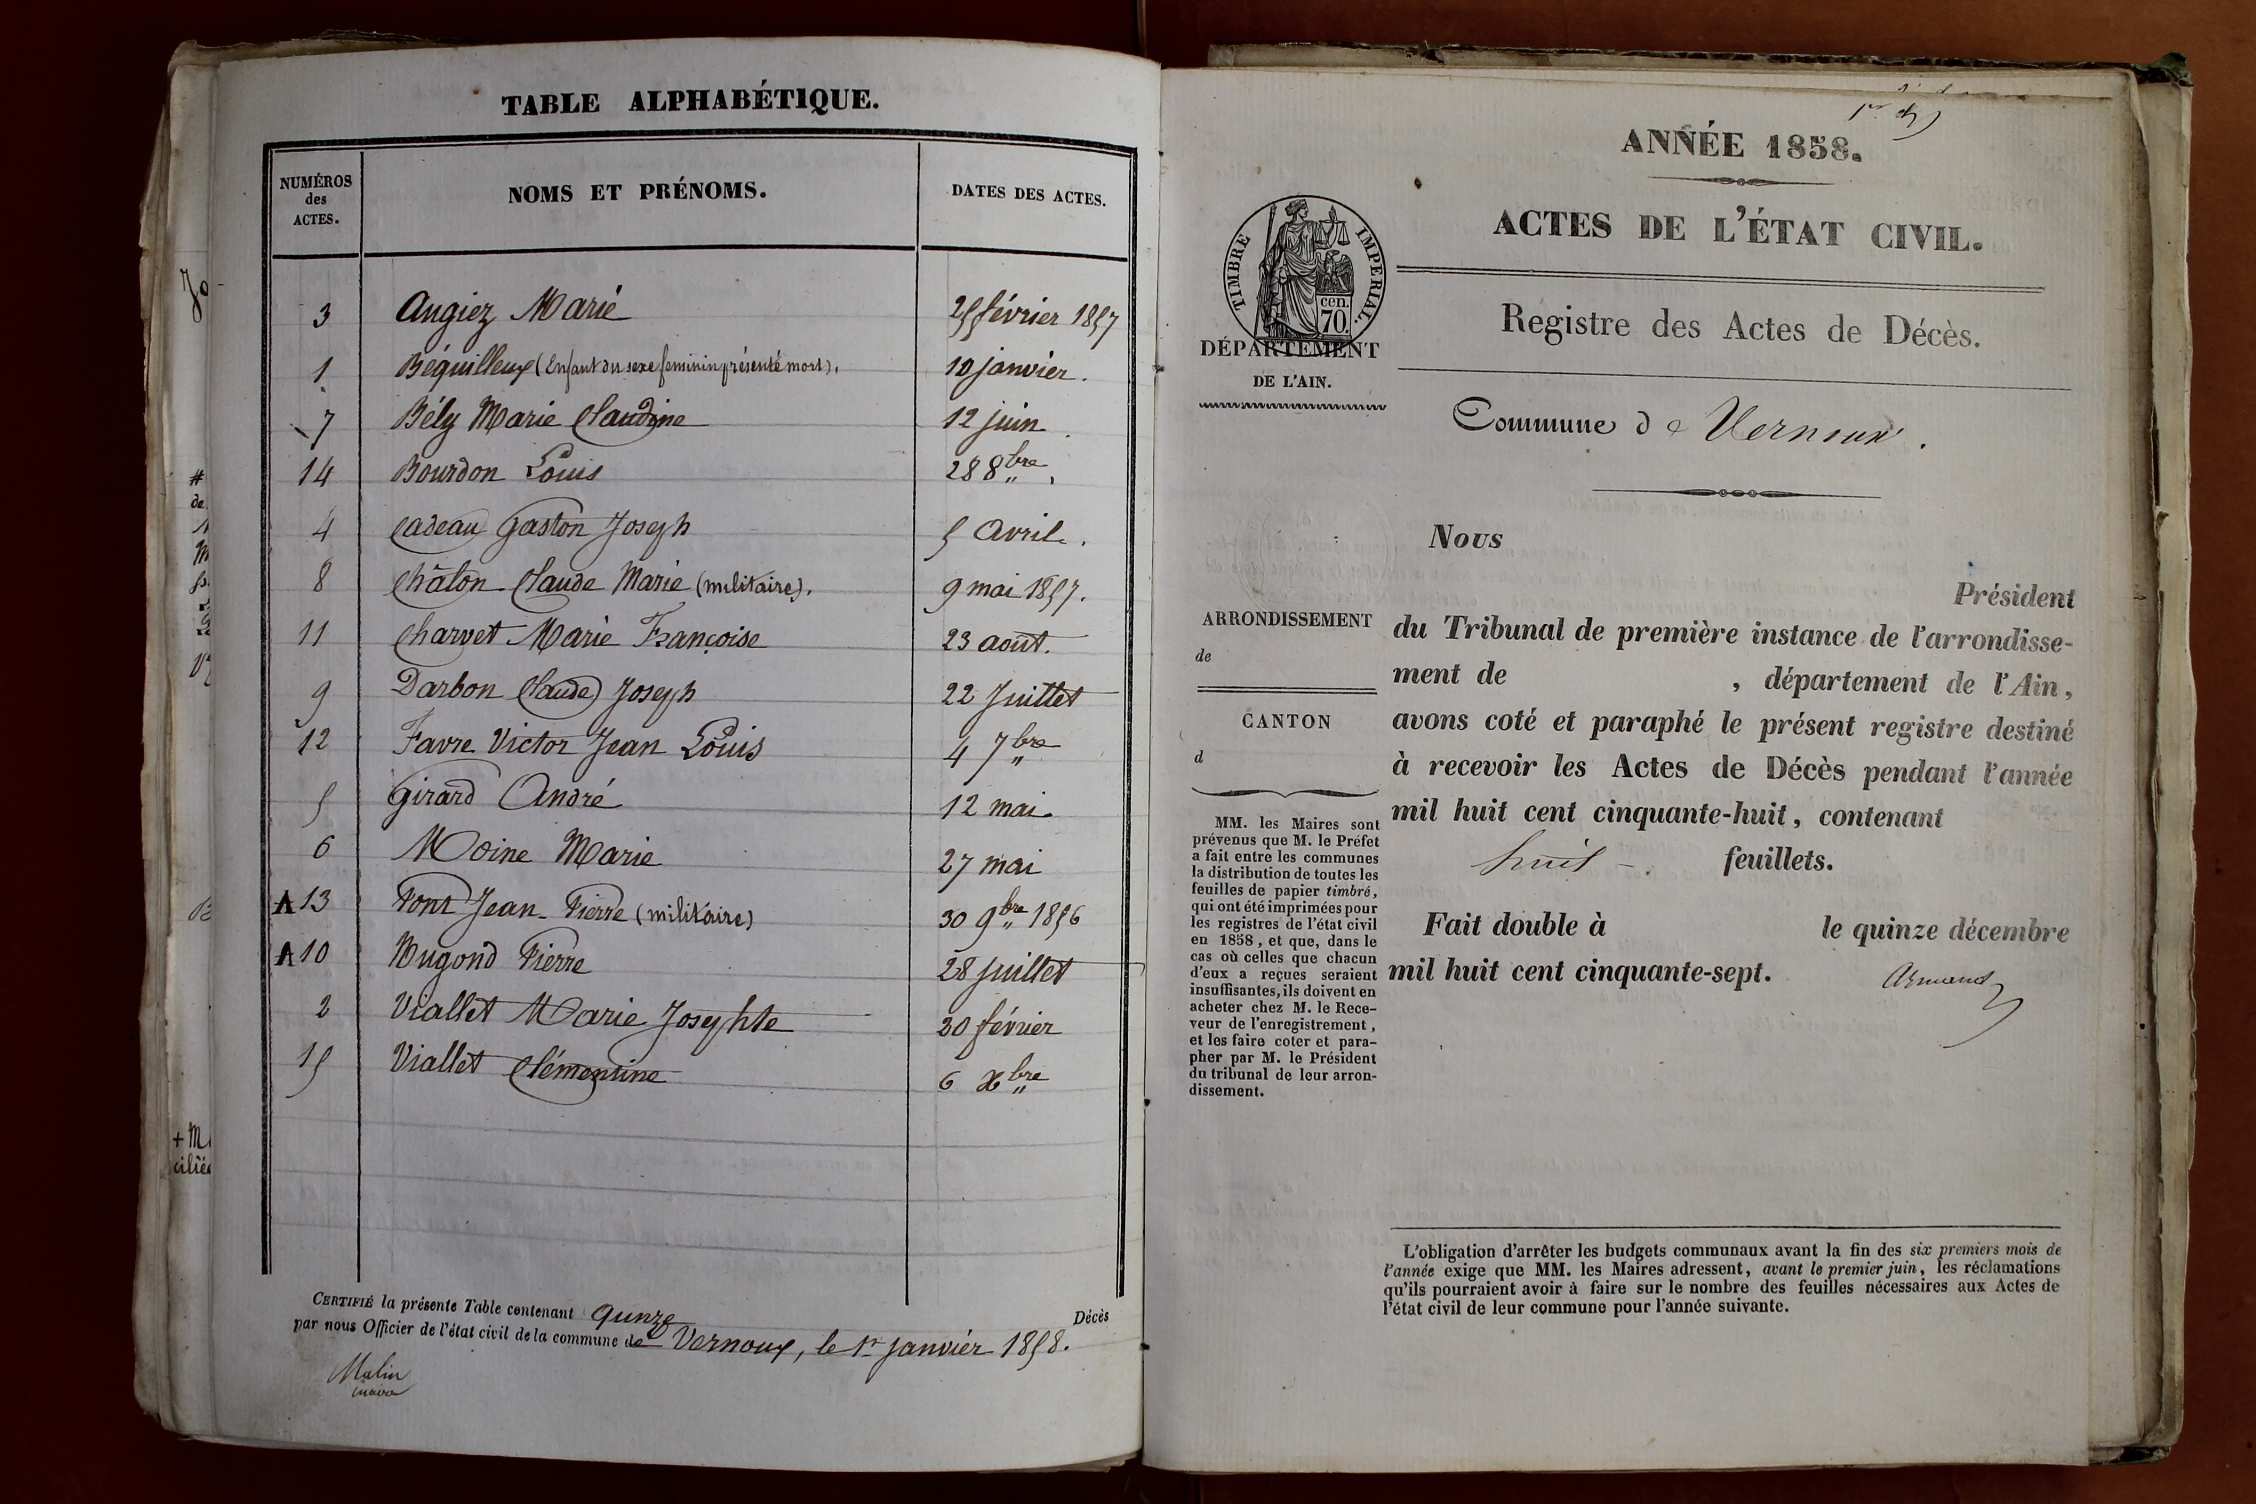 TABLE ALPHABÉTIQUE.
NUMÉROS
des
ACTES.
NOMS ET PRÉNOMS.
DATES DES ACTES.
3 Augiez Marie 25 février 1857
1 Béquilleux (Enfant du sexe feminin présenté mort). 10 janvier.
7 Bély Marie Claudine 12 juin
14 Bourdon Louis 28 8bre.
4 Cadeau Gaston Joseph 5 Avril.
8 Châlon Claude Marie (militaire). 9 mai 1857.
11 Charvet Marie Françoise 23 août.
9 Darbon Claude Joseph 22 Juillet
12 Favre Victor Jean Louis 4 7bre
5 Girard André 12 mai.
6 Moine Marie 27 mai
A 13 Pont Jean-Pierre (militaire) 30 9bre 1856
A 10 Pierre 28 juillet
2 Viallet Marie Josephte 20 février
15 Viallet Clémentine 6 Xbre
CERTIFIÉ la présente Table contenant quinze Décès
par nous Officier de l'état civil de la commune de Vernoux, le 1r janvier 1858.
ANNÉE 1858.
ACTES DE L'ÉTAT CIVIL.
TIMBRE IMPERIAL.
cen.
70.
DÉPARTEMENT
DE L'AIN.
Registre des Actes de Décès.
Commune de Vernoux.
Nous
Président
du Tribunal de première instance de l'arrondisse-
ment de , département de l'Ain,
avons coté et paraphé le présent registre destiné
à recevoir les Actes de Décès pendant l'année
mil huit cent cinquante-huit, contenant
huit feuillets.
Fait double à le quinze décembre
mil huit cent cinquante-sept.
ARRONDISSEMENT
de
CANTON
d
MM. les Maires sont
prévenus que M. le Préfet
a fait entre les communes
la distribution de toutes les
feuilles de papier timbré,
qui ont été imprimées pour
les registres de l'état civil
en 1858, et que, dans le
cas où celles que chacun
d'eux a reçues seraient
insuffisantes, ils doivent en
acheter chez M. le Rece-
veur de l'enregistrement,
et les faire coter et para-
pher par M. le Président
du tribunal de leur arron-
dissement.
L'obligation d'arrêter les budgets communaux avant la fin des six premiers mois de
l'année exige que MM. les Maires adressent, avant le premier juin, les réclamations
qu'ils pourraient avoir à faire sur le nombre des feuilles nécessaires aux Actes de
l'état civil de leur commune pour l'année suivante.